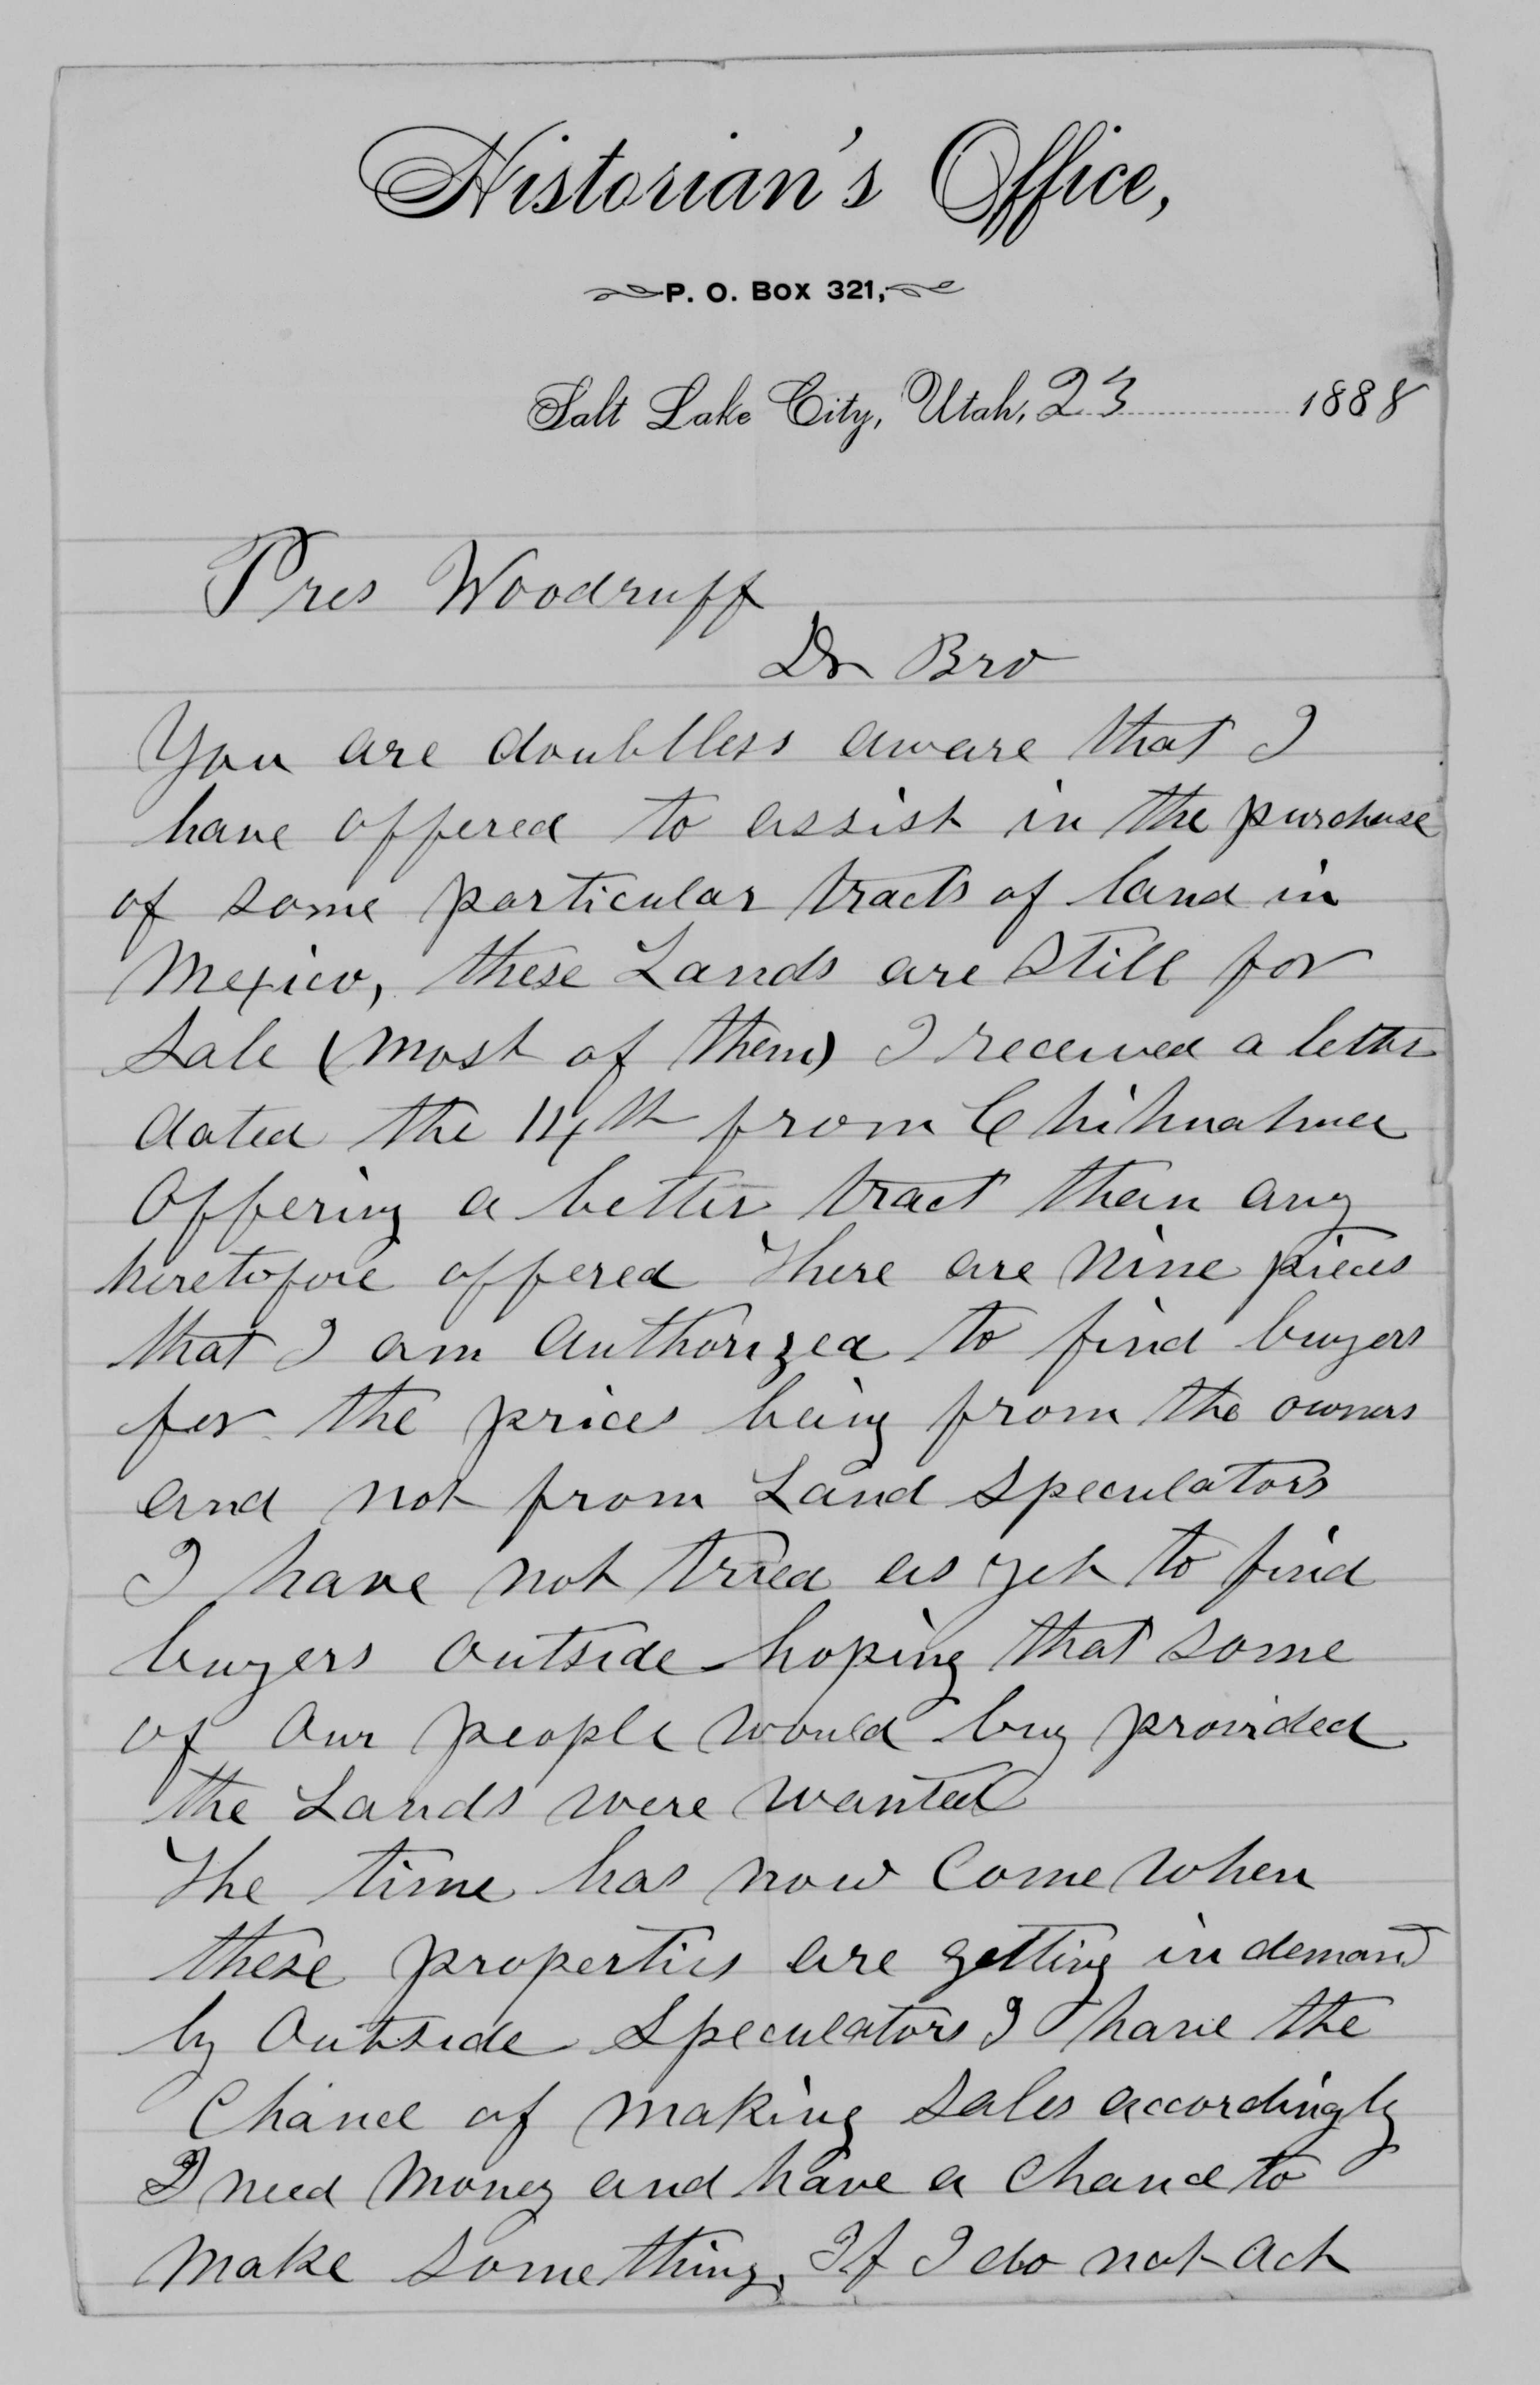 Historian's Office,
P. O. BOX 321,
Salt Lake City, Utah, 23 1888
Pres Woodruff
Dr Bro
You are doubtless aware that I
have offered to assist in the purchase
of some particular tracts of land in
Mexico, these Lands are still for
Sale (most of them) I received a letter
dated the 14th from Chihuahua
Offering a better tract than any
heretofore offered There are nine pieces
that I am Authorized to find buyers
for the prices being from the owners
and not from Land Speculators
I have not tried as yet to find
buyers outside hoping that some
of our people would buy provided
the Lands were wanted
The time has now Come when
these properties are getting in demand
by Outside Speculators I have the
Chance of making Sales accordingly
I need Money and have a Chance to
Make Something, If I do not Act